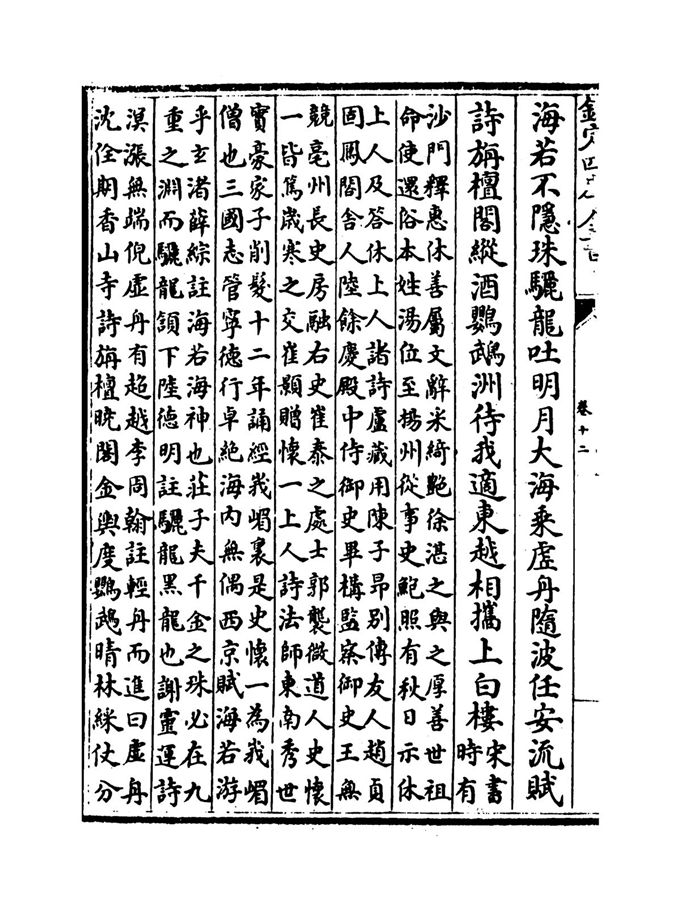 欽定四庫全書
卷十二
海若不隱珠驪龍吐明月大海乗虛舟隨波任安流賦
詩旃檀閣縱酒鸚鵡洲待我適東越相攜上白樓宋書
時有
沙門釋惠休善屬文辭采綺艷徐湛之與之厚善世祖
命使還俗本姓湯位至揚州從事史鮑照有秋日示休
上人及答休上人諸詩盧藏用陳子昂别傳友人趙貞
固鳳閣舍人陸餘慶殿中侍御史畢構監察御史王無
競亳州長史房融右史崔泰之處士郭襲微道人史懷
一皆篤歲寒之交崔顥贈懷一上人詩法師東南秀世
實豪家子削髮十二年誦經峩嵋裏是史懷一為峩嵋
僧也三國志管寧德行卓絶海内無偶西京賦海若游
乎玄渚薛綜註海若海神也莊子夫千金之珠必在九
重之淵而驪龍頷下陸德明註驪龍黑龍也謝靈運詩
溟漲無端倪虛舟有超越李周翰註輕舟而進曰虛舟
沈佺期香山寺詩旃檀晚閣金輿度鸚鵡晴林綵仗分